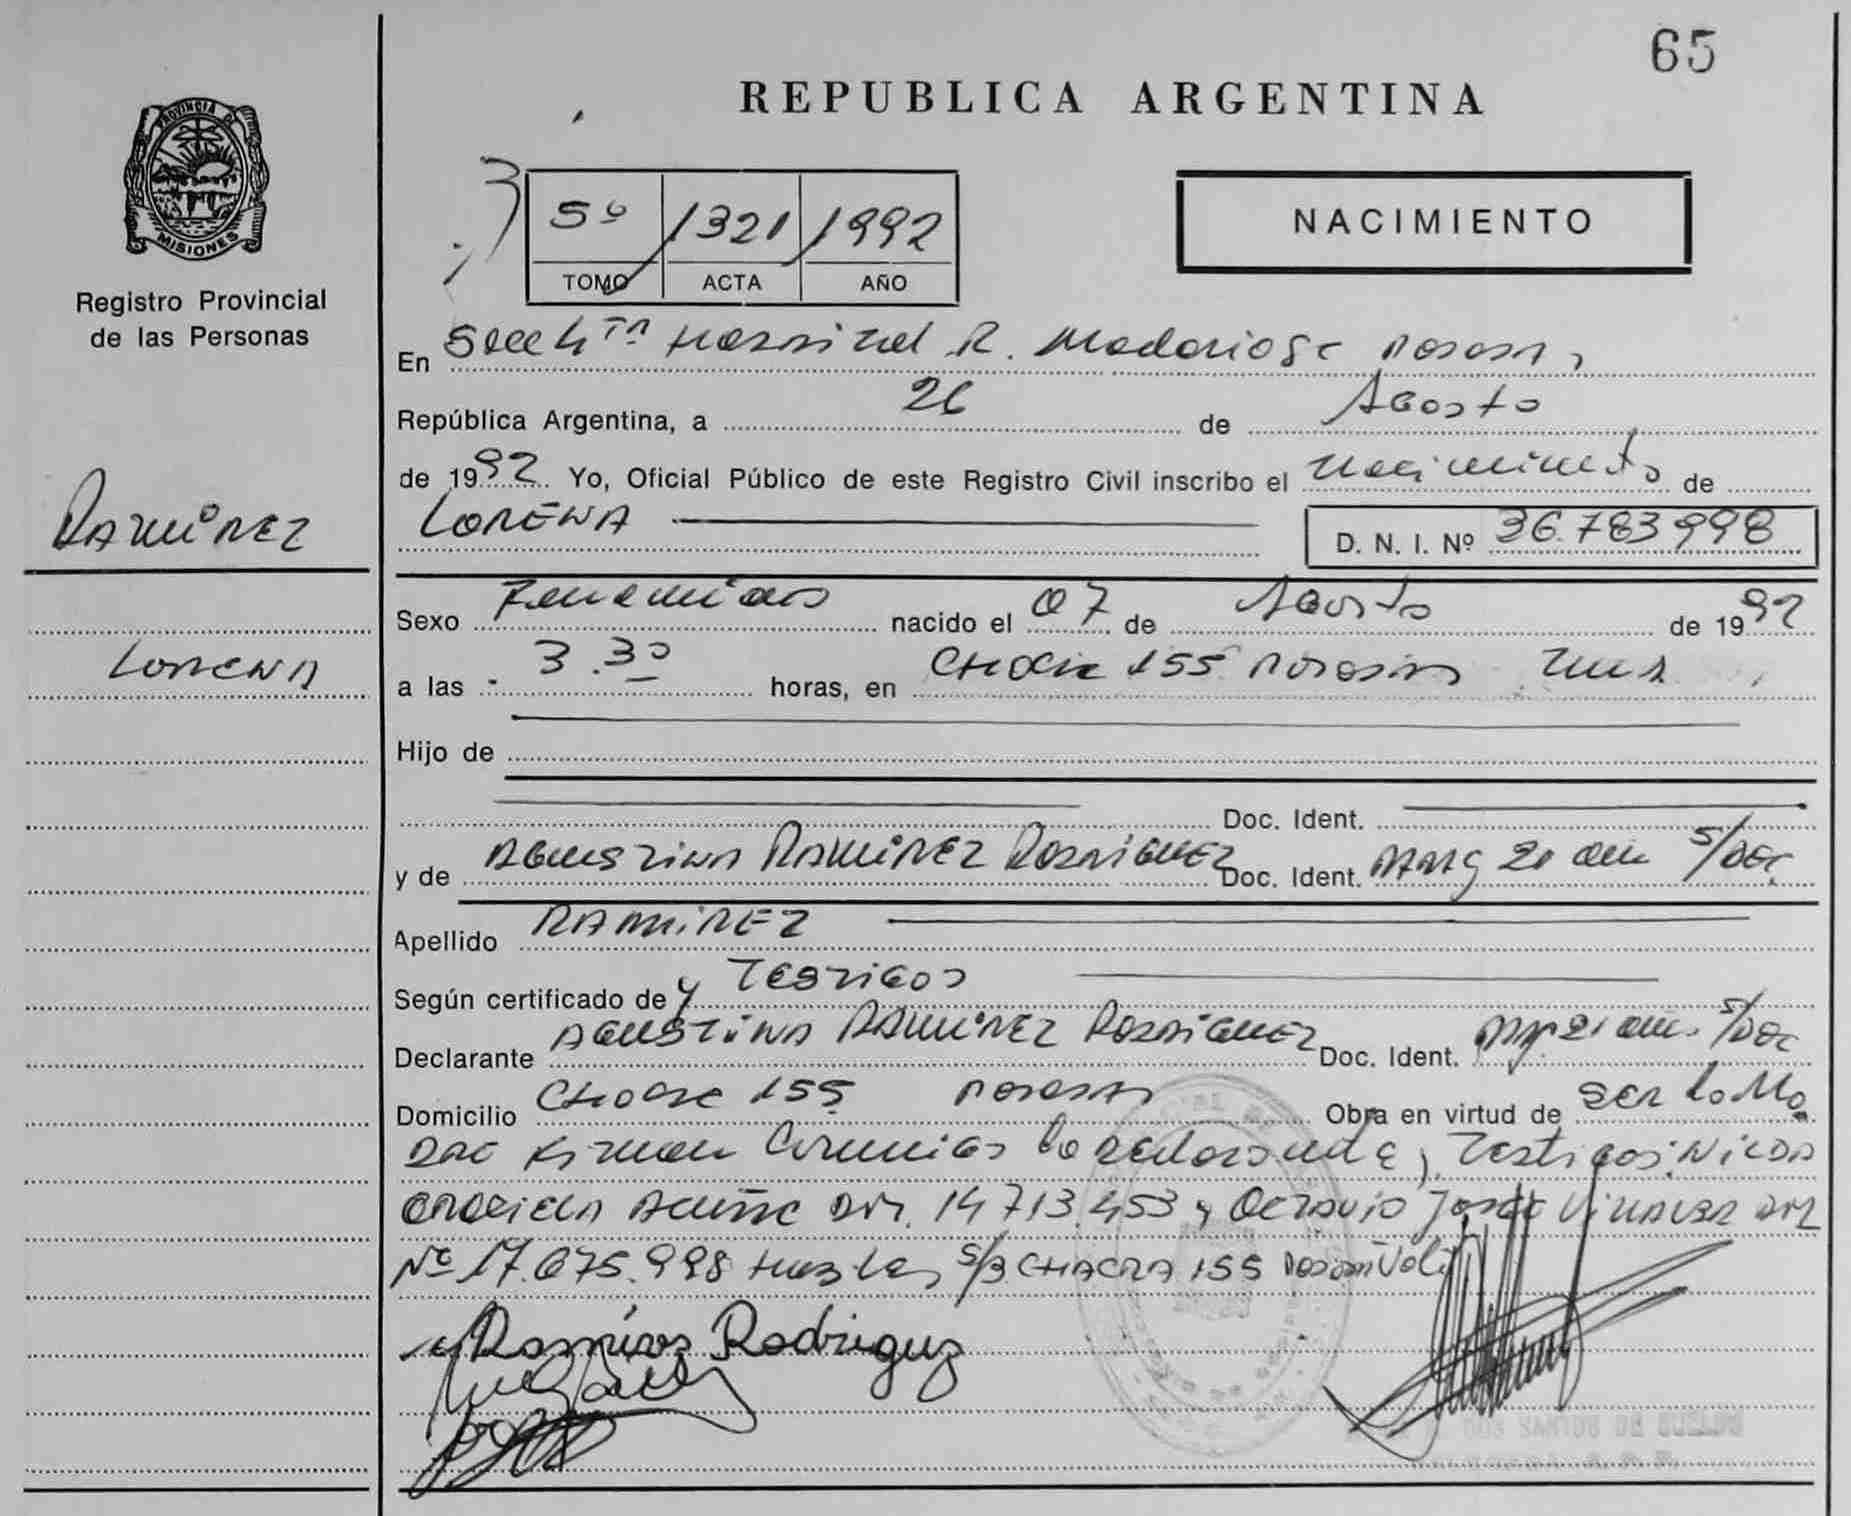 65
REPUBLICA ARGENTINA
PROVINCIA DE
MISIONES
Registro Provincial
de las Personas
5º 1321 1992
TOMO ACTA AÑO
NACIMIENTO
En Secc 4ta Hospital R. Madariaga Posadas,
República Argentina, a 26 de Agosto
de 1992 Yo, Oficial Público de este Registro Civil inscribo el Nacimiento de
RAMIREZ
LORENA
D. N. I. Nº 36.783.998
Sexo Femenino nacido el 07 de Agosto de 1992
LORENA
a las 3.30 horas, en Chacra 155 Posadas
Hijo de
Doc. Ident.
y de AGUSTINA RAMIREZ RODRIGUEZ Doc. Ident. s/DOC
Apellido RAMIREZ
Según certificado de y TESTIGOS
Declarante AGUSTINA RAMIREZ RODRIGUEZ Doc. Ident. s/DOC
Domicilio Chacra 155 Posadas Obra en virtud de ser la Ma
dre firman conmigo la declarante y Testigos: NILDA
GRACIELA ACUÑA DNI. 14.713.453 y OCTAVIO José VILLALBA DNI
Nº 17.675.998 CHACRA 155
Ramíres Rodriguez
DOS SANTOS DE